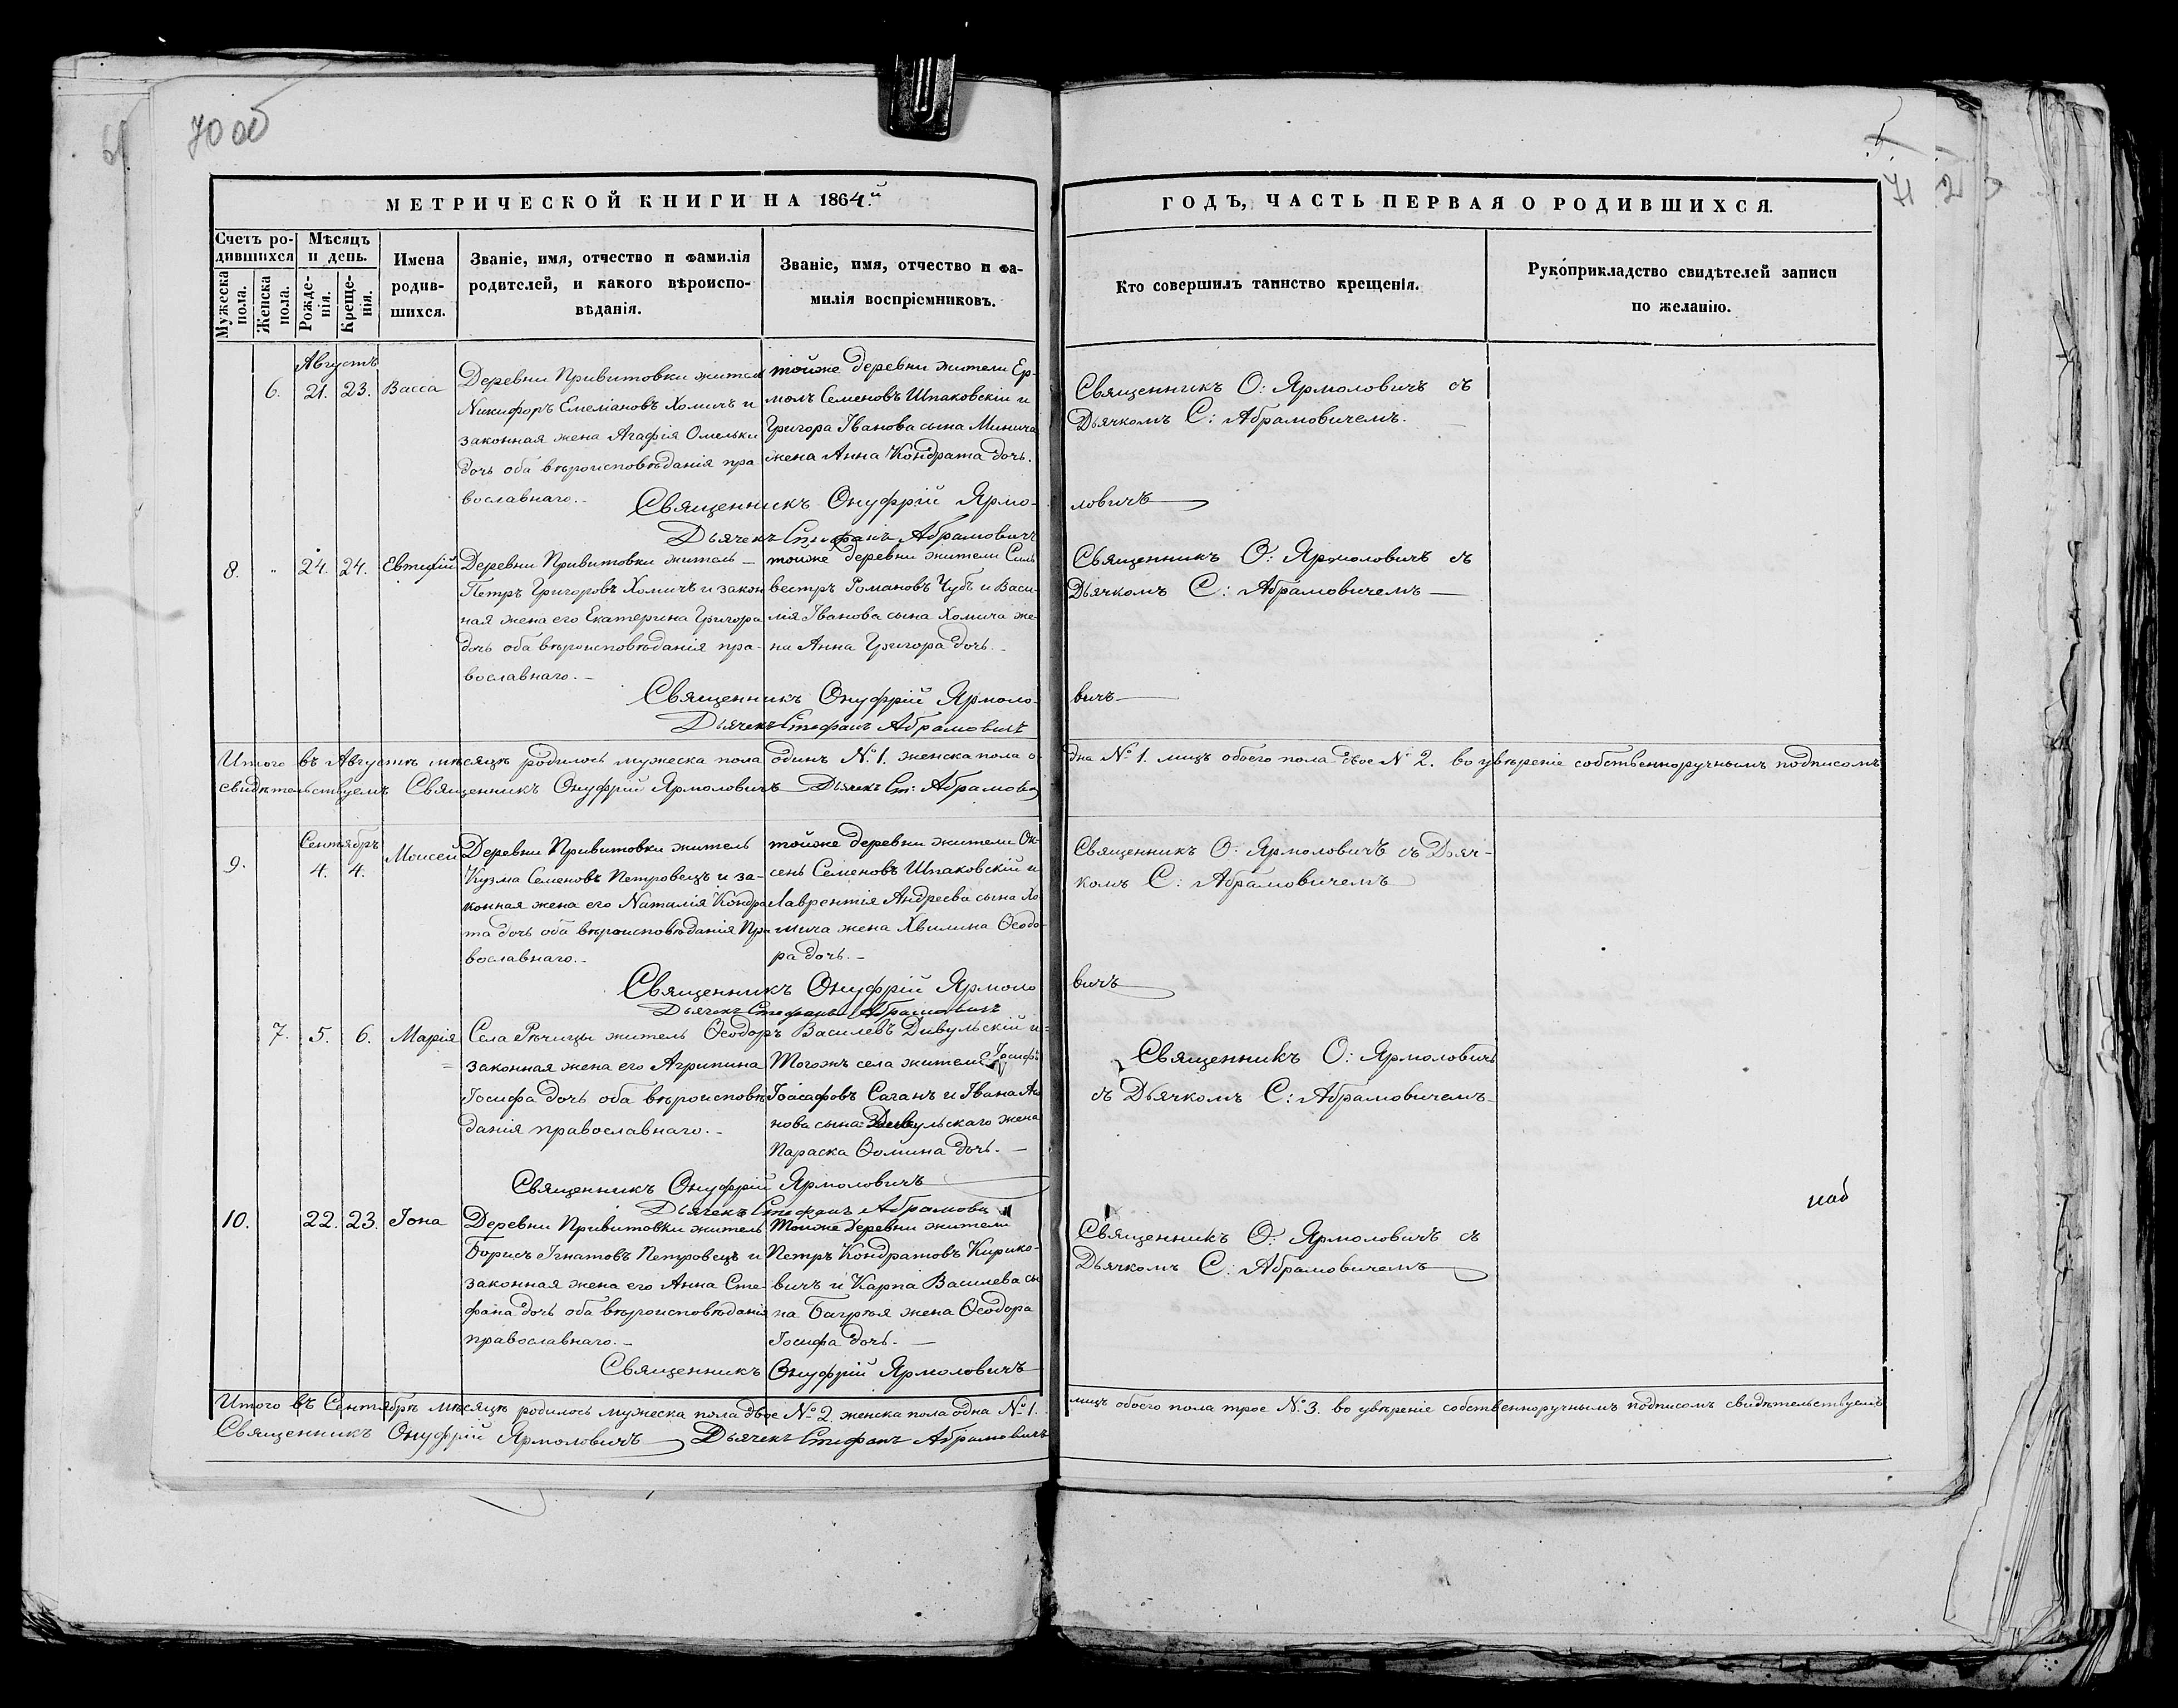 70 об
71
МЕТРИЧЕСКОЙ КНИГИ НА 1864.й
ГОДЪ, ЧАСТЬ ПЕРВАЯ О РОДИВШИХСЯ.
Счетъ ро-
дившихся
Мужеска пола.
Женска пола.
Мѣсяцъ
и день.
Рожде-
нія.
Креще-
нія.
Имена
родив-
шихся.
Званіе, имя, отчество и фамилія
родителей, и какого вѣроиспо-
вѣданія.
Званіе, имя, отчество и фа-
милія воспріемниковъ.
Кто совершилъ таинство крещенія.
Рукоприкладство свидѣтелей записи
по желанію.
Августъ
6. 21. 23. Васса
Деревни Привитовки житель
Никифоръ Емеліановъ Хомичъ и
законная жена Агафія Омельки
дочь оба вѣроисповѣданія пра-
вославнаго.-
тойже деревни жители Ер-
молъ Семеновъ Шпаковскій и
Григора Іванова сына Минича
жена Анна Кондрата дочь.
Священникъ О: Ярмоловичъ съ
Дьячкомъ С: Абрамовичемъ.
Священникъ Онуфрій Ярмо-
ловичъ
Дьячекъ Стефанъ Абрамовичъ
8. „ 24. 24. Евтихій
Деревни Привитовки житель -
Петръ Григоровъ Хомичъ и закон
ная жена его Екатерина Григора
дочь оба вѣроисповѣданія пра-
вославнаго.-
тойже деревни жители Силь
вестръ Романовъ Чубъ и Васи-
лія Іванова сына Хомича же-
на Анна Григора дочь.-
Священникъ О: Ярмоловичъ съ
Дьячкомъ С: Абрамовичемъ
Священникъ Онуфрій Ярмоло-
вичъ
Дьячекъ Стефанъ Абрамовичъ
Итого въ Августѣ мѣсяцѣ родилось мужеска пола одинъ №. 1. женска пола о-
дна № 1. лицъ обоего пола двое № 2. во увѣреніе собственноручнымъ подписомъ
свидѣтельствуемъ Священникъ Онуфрій Ярмоловичъ Дьячекъ Ст: Абрамови
Сентябрь
9. 4. 4. Моисей
Деревни Привитовки житель
Кузма Семеновъ Петровецъ и за-
конная жена его Наталія Кондра
та дочь оба вѣроисповѣданія Пра
вославнаго.-
тойже деревни жители Ок-
сень Семеновъ Шпаковскій и
Лаврентія Андреева сына Хо-
мича жена Хвилина Ѳеодо-
ра дочь.-
Священникъ О: Ярмоловичъ съ Дьяч-
комъ С: Абрамовичемъ
Священникъ Онуфрій Ярмоло
вичъ
Дьячекъ Стефанъ Абрамовичъ
7. 5. 6. Марія
Села Рѣчицы житель Ѳеодоръ Василевъ Дивульскій и=
законная жена его Агрипина
Іосифа дочь оба вѣроисповѣ
данія православнаго.-
Тогожъ села жители Іосифъ
Іоасафовъ Саганъ и Івана Ан
нова сына Дивульскаго жена
Параска Ѳомина дочь.-
Священникъ О: Ярмоловичъ
съ Дьячкомъ С: Абрамовичемъ
Священникъ Онуфрій Ярмоловичъ
Дьячекъ Стефанъ Абрамови
10. 22. 23. Іона
Деревни Привитовки житель
Борисъ Ігнатовъ Петровецъ и
законная жена его Анна Сте-
фана дочь оба вѣроисповѣданія
православнаго.-
Тойже деревни жители
Петръ Кондратовъ Кирико-
вичъ и Карпа Василева сы
на Багрѣя жена Ѳеодора
Іосифа дочь.-
Священникъ О: Ярмоловичъ съ
Дьячкомъ С: Абрамовичемъ
Священникъ Онуфрій Ярмоловичъ
Итого въ Сентябрѣ мѣсяцѣ родилось мужеска пола двое № 2. женска пола одна № 1.
лицъ обоего пола трое №. 3. во увѣреніе собственноручнымъ подписомъ свидѣтельствуемъ
Священникъ Онуфрій Ярмоловичъ Дьячекъ Стефанъ Абрамовичъ